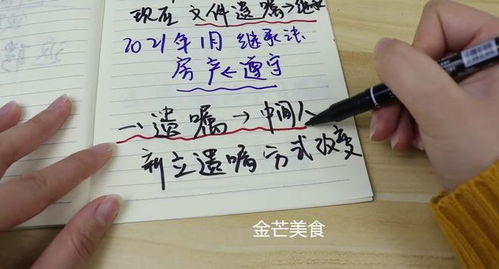 现至文件遗嘱→继承
2021年1月继承法
房产←遵守
一、遗嘱→中间人
新立遗嘱方式改变
金芒美食